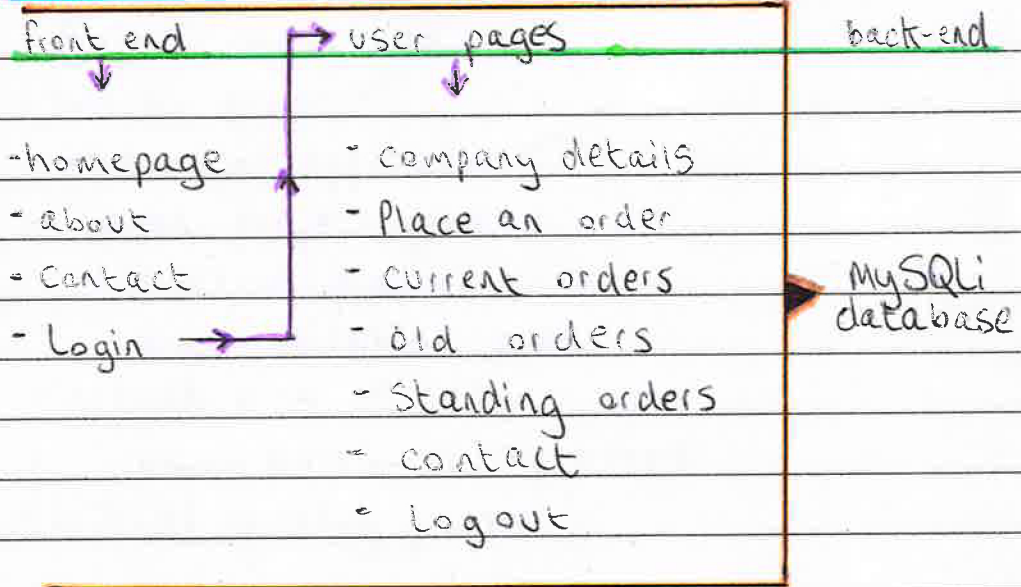 front end
↓
-homepage
- about
- Contact
- Login →
user pages
↓
- company details
- Place an order
- current orders
- old orders
- Standing orders
- contact
- Logout
back-end
MySQLi
database